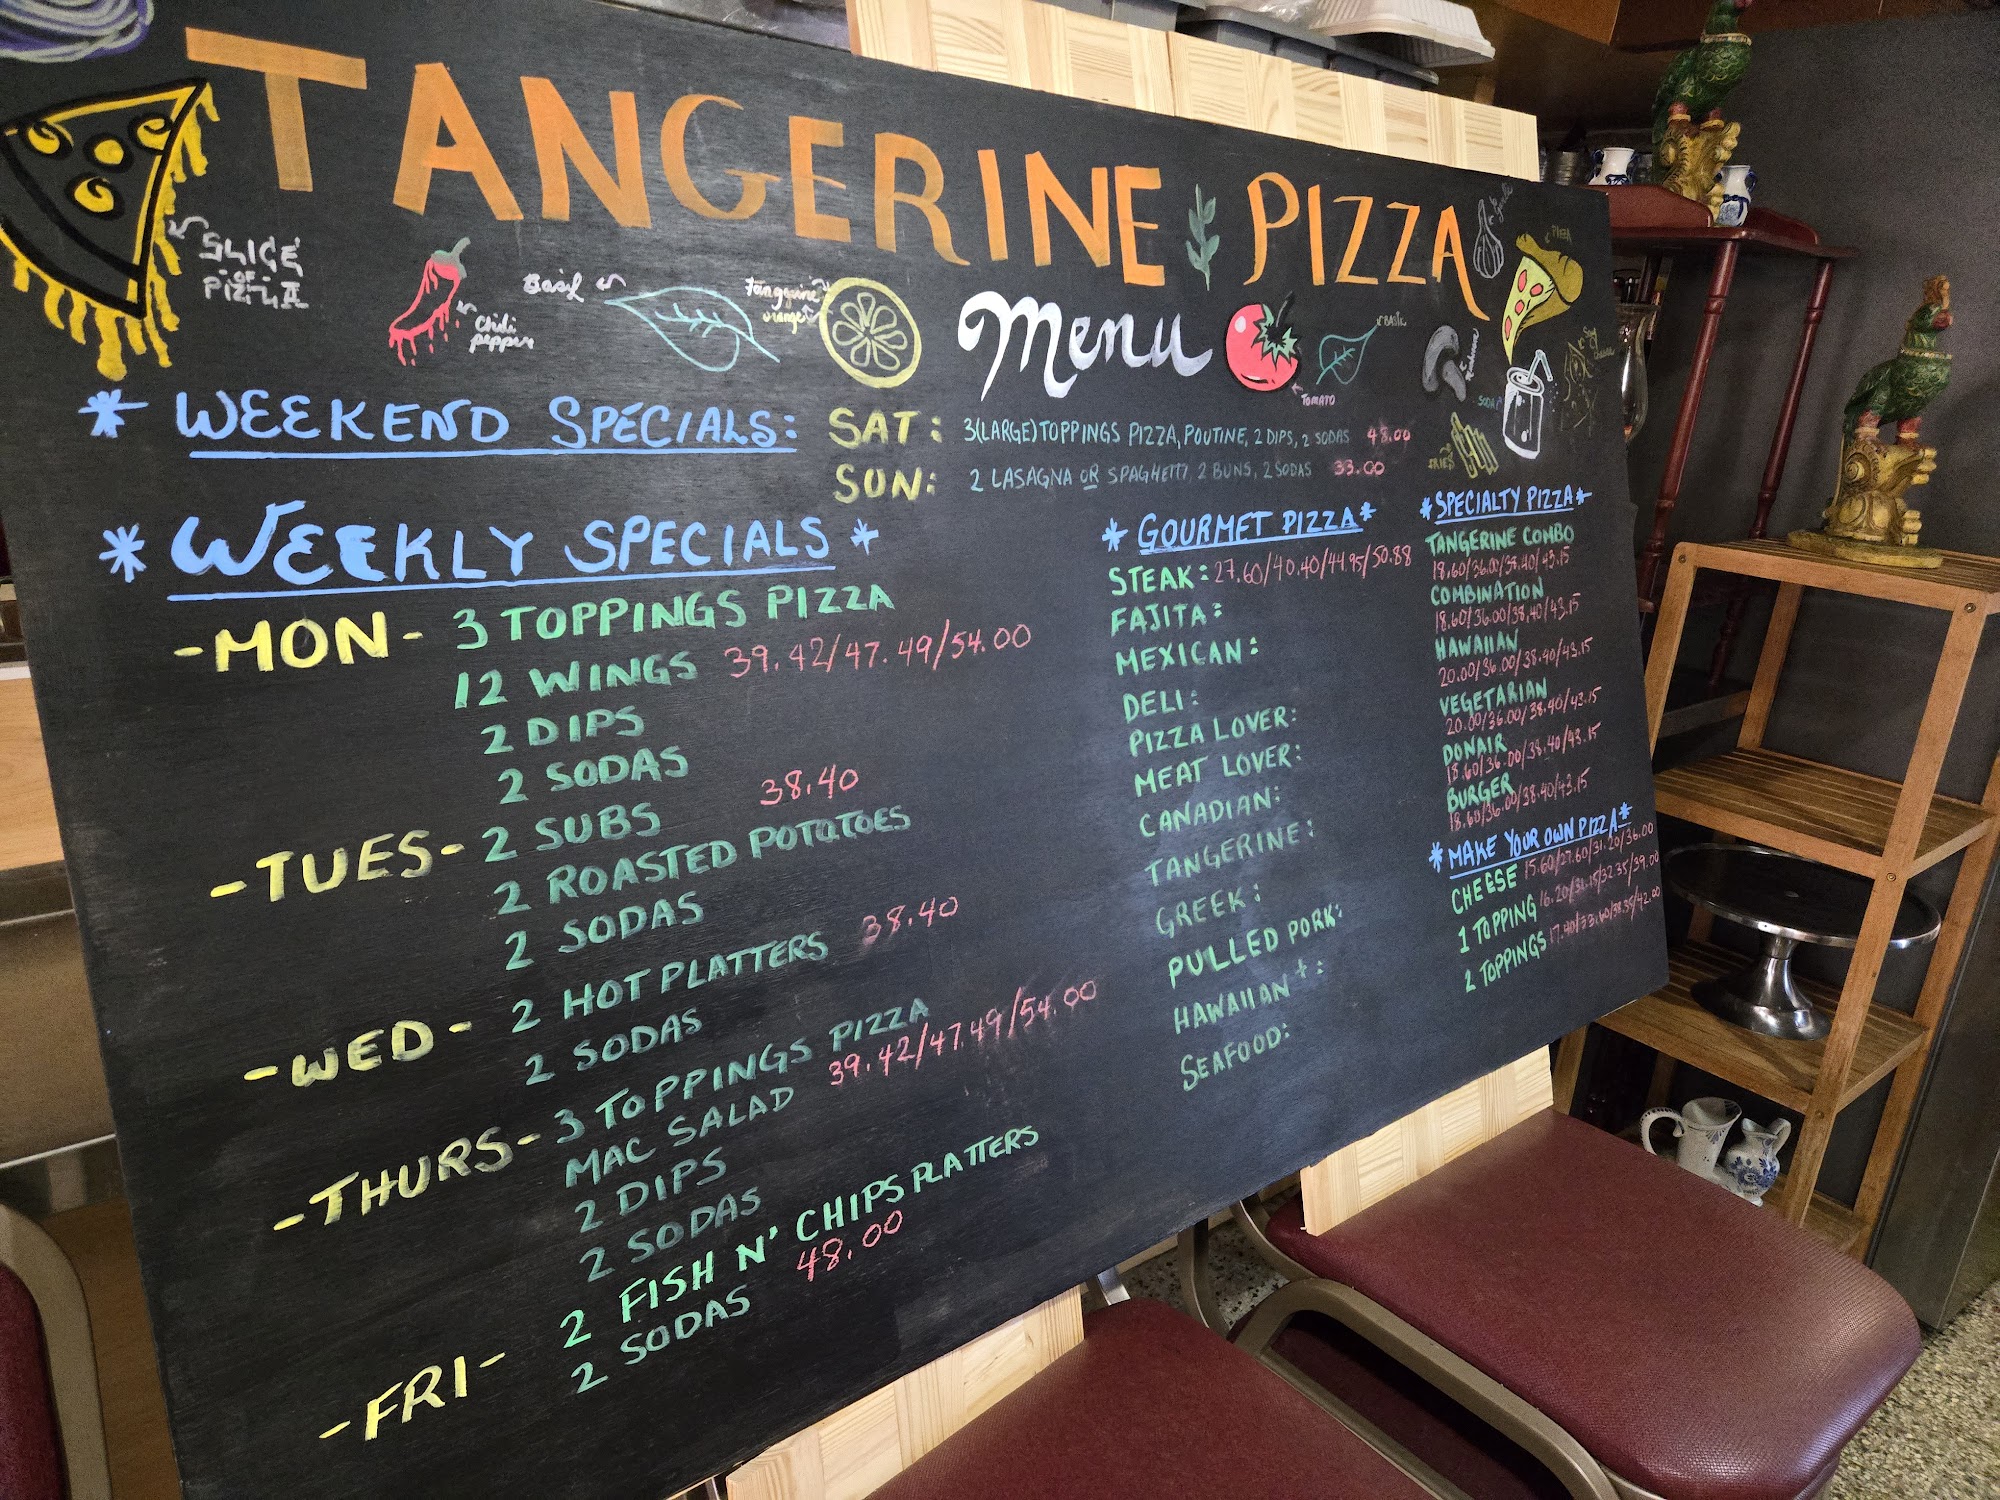 TANGERINE PIZZA
SLICE
OF
PIZZA
Chili
pepper
Basil
Tangerine
orange
Menu
TOMATO
BASIL
PIZZA
SODA
FRIES
* WEEKEND SPECIALS:
SAT: 3(LARGE)TOPPINGS PIZZA, POUTINE, 2 DIPS, 2 SODAS 48.00
SUN: 2 LASAGNA OR SPAGHETTI, 2 BUNS, 2 SODAS 33.00
* WEEKLY SPECIALS *
-MON- 3 TOPPINGS PIZZA
12 WINGS 39.42/47.49/54.00
2 DIPS
2 SODAS
-TUES- 2 SUBS 38.40
2 ROASTED POTATOES
2 SODAS
-WED- 2 HOT PLATTERS 38.40
2 SODAS
-THURS- 3 TOPPINGS PIZZA
MAC SALAD 39.42/47.49/54.00
2 DIPS
2 SODAS
-FRI- 2 FISH N' CHIPS PLATTERS
2 SODAS 48.00
* GOURMET PIZZA *
STEAK: 27.60/40.40/44.95/50.88
FAJITA:
MEXICAN:
DELI:
PIZZA LOVER:
MEAT LOVER:
CANADIAN:
TANGERINE:
GREEK:
PULLED PORK:
HAWAIIAN+:
SEAFOOD:
*SPECIALTY PIZZA*
TANGERINE COMBO
18.60/36.00/38.40/43.15
COMBINATION
18.60/36.00/38.40/43.15
HAWAIIAN
20.00/36.00/38.40/43.15
VEGETARIAN
20.00/36.00/38.40/43.15
DONAIR
18.60/36.00/38.40/43.15
BURGER
18.60/36.00/38.40/43.15
* MAKE YOUR OWN PIZZA *
CHEESE 15.60/27.60/31.20/36.00
1 TOPPING 16.20/31.15/32.35/39.00
2 TOPPINGS 17.40/33.60/38.35/42.00